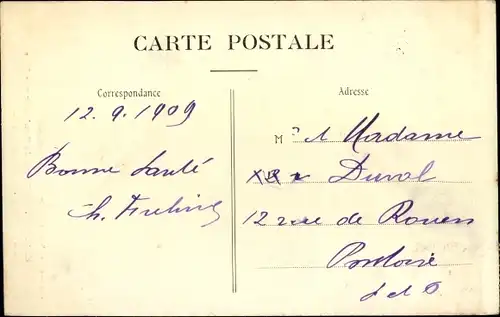 CARTE POSTALE
Correspondance
Adresse
12.9.1909
Bonne Santé
Ch.
M r et Madame
Duval
12 rue de Rouen
Pontoise
S et O.